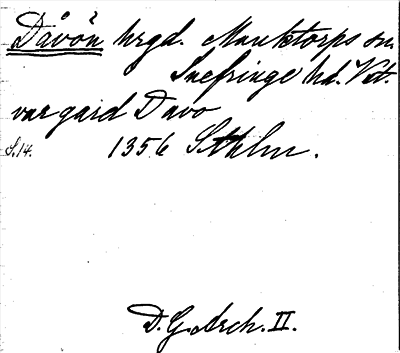 Dåvön hrgd. Munktorps sn.
Snefringe hd. Vst.
var gard Davo
S. 14. 1356 Sthlm.
D. G. Arch. II.